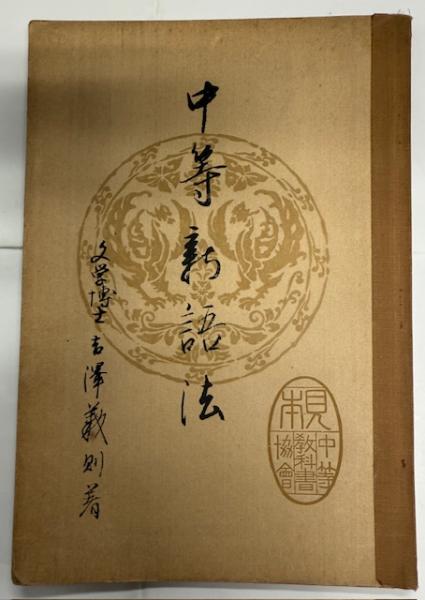 中等新語法
文学博士吉澤義則著
見本
中等
教科書
協會